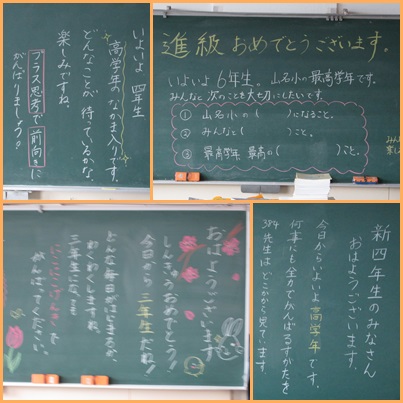 いよいよ 四年生
高学年のなかま入りです。
どんなことが 待っているかな。
楽しみですね。
プラス思考で 前向きに
がんばりましょう!
進級 おめでとうございます。
いよいよ 6年生。 山名小の最高学年です。
みんなと 次のことを大切にしたいです。
① 山名小の( )になること。
② みんなと( )こと。
③ 最高学年 最高の( )こと。
おはようございます
しんきゅうおめでとう!
今日から 三年生だね!
どんな毎日がはじまるか、
わくわくしますね
三年生こなも
にこにこげんきで
がんばってください。
新四年生のみなさん
おはようございます。
今日からいよいよ高学年です。
何事にも全力でがんばるすがたを
384先生は どこかから見ています